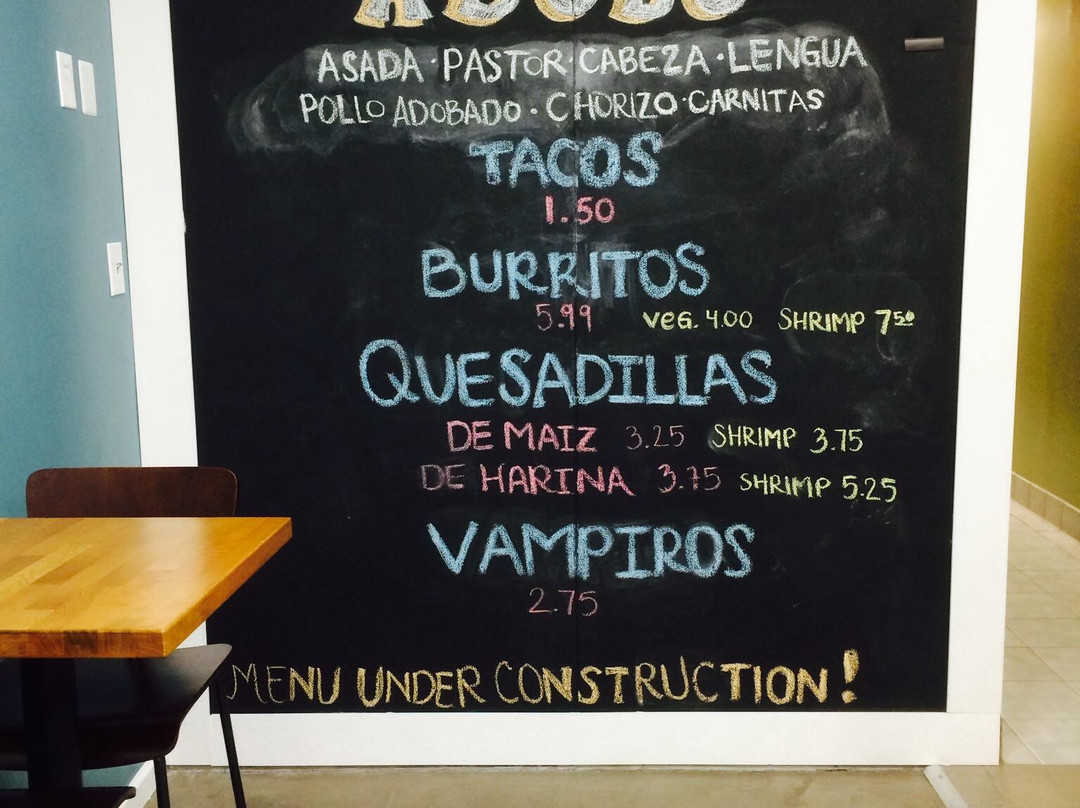 ADOBO
ASADA · PASTOR · CABEZA · LENGUA
POLLO ADOBADO · CHORIZO · CARNITAS
TACOS
1.50
BURRITOS
5.99 VEG. 4.00 SHRIMP 7 50
QUESADILLAS
DE MAIZ 3.25 SHRIMP 3.75
DE HARINA 3.75 SHRIMP 5.25
VAMPIROS
2.75
MENU UNDER CONSTRUCTION!